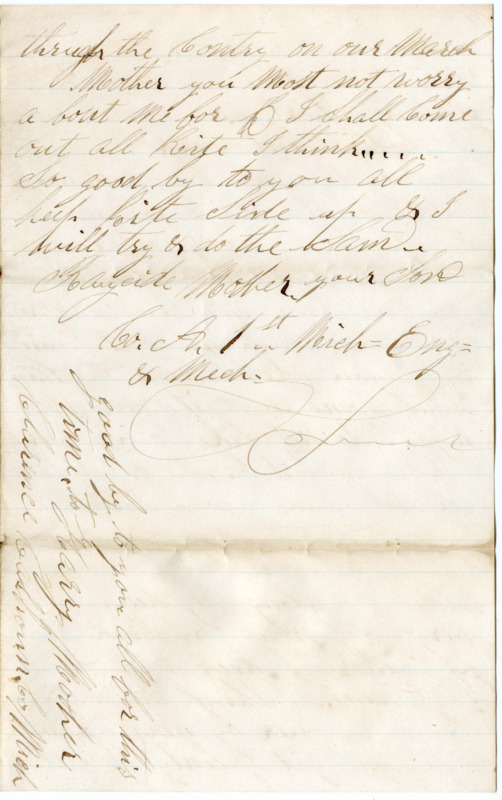 through the Contry on our March
Mother you Most not worry
a bout Me for I shall Come
out all Rite I think.....
So good by to you all
keep Rite Side up & I
will try & do the Same
Mother your Son
Co. A. 1st Mich= Eng=
& Mech=
good by to you all for this
time to Mother
Clarence Mich